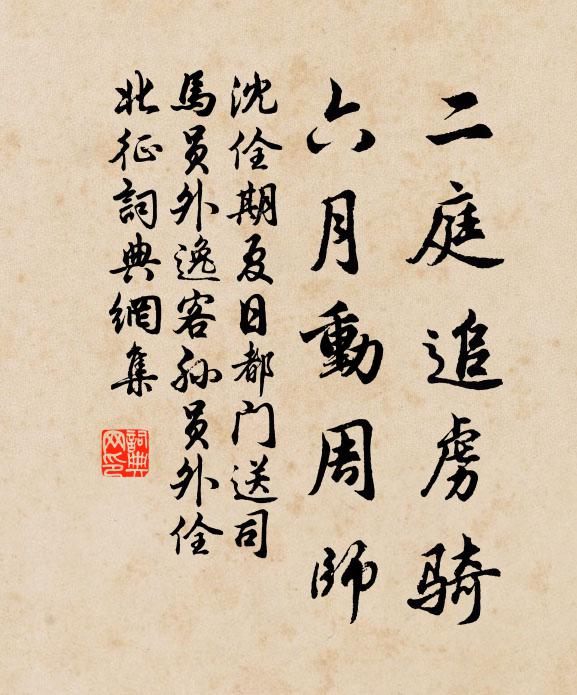 二庭追虏骑
六月動周師
沈佺期夏日都门送司
馬员外逸客孙员外佺
北征詞典網集
詞典
网印